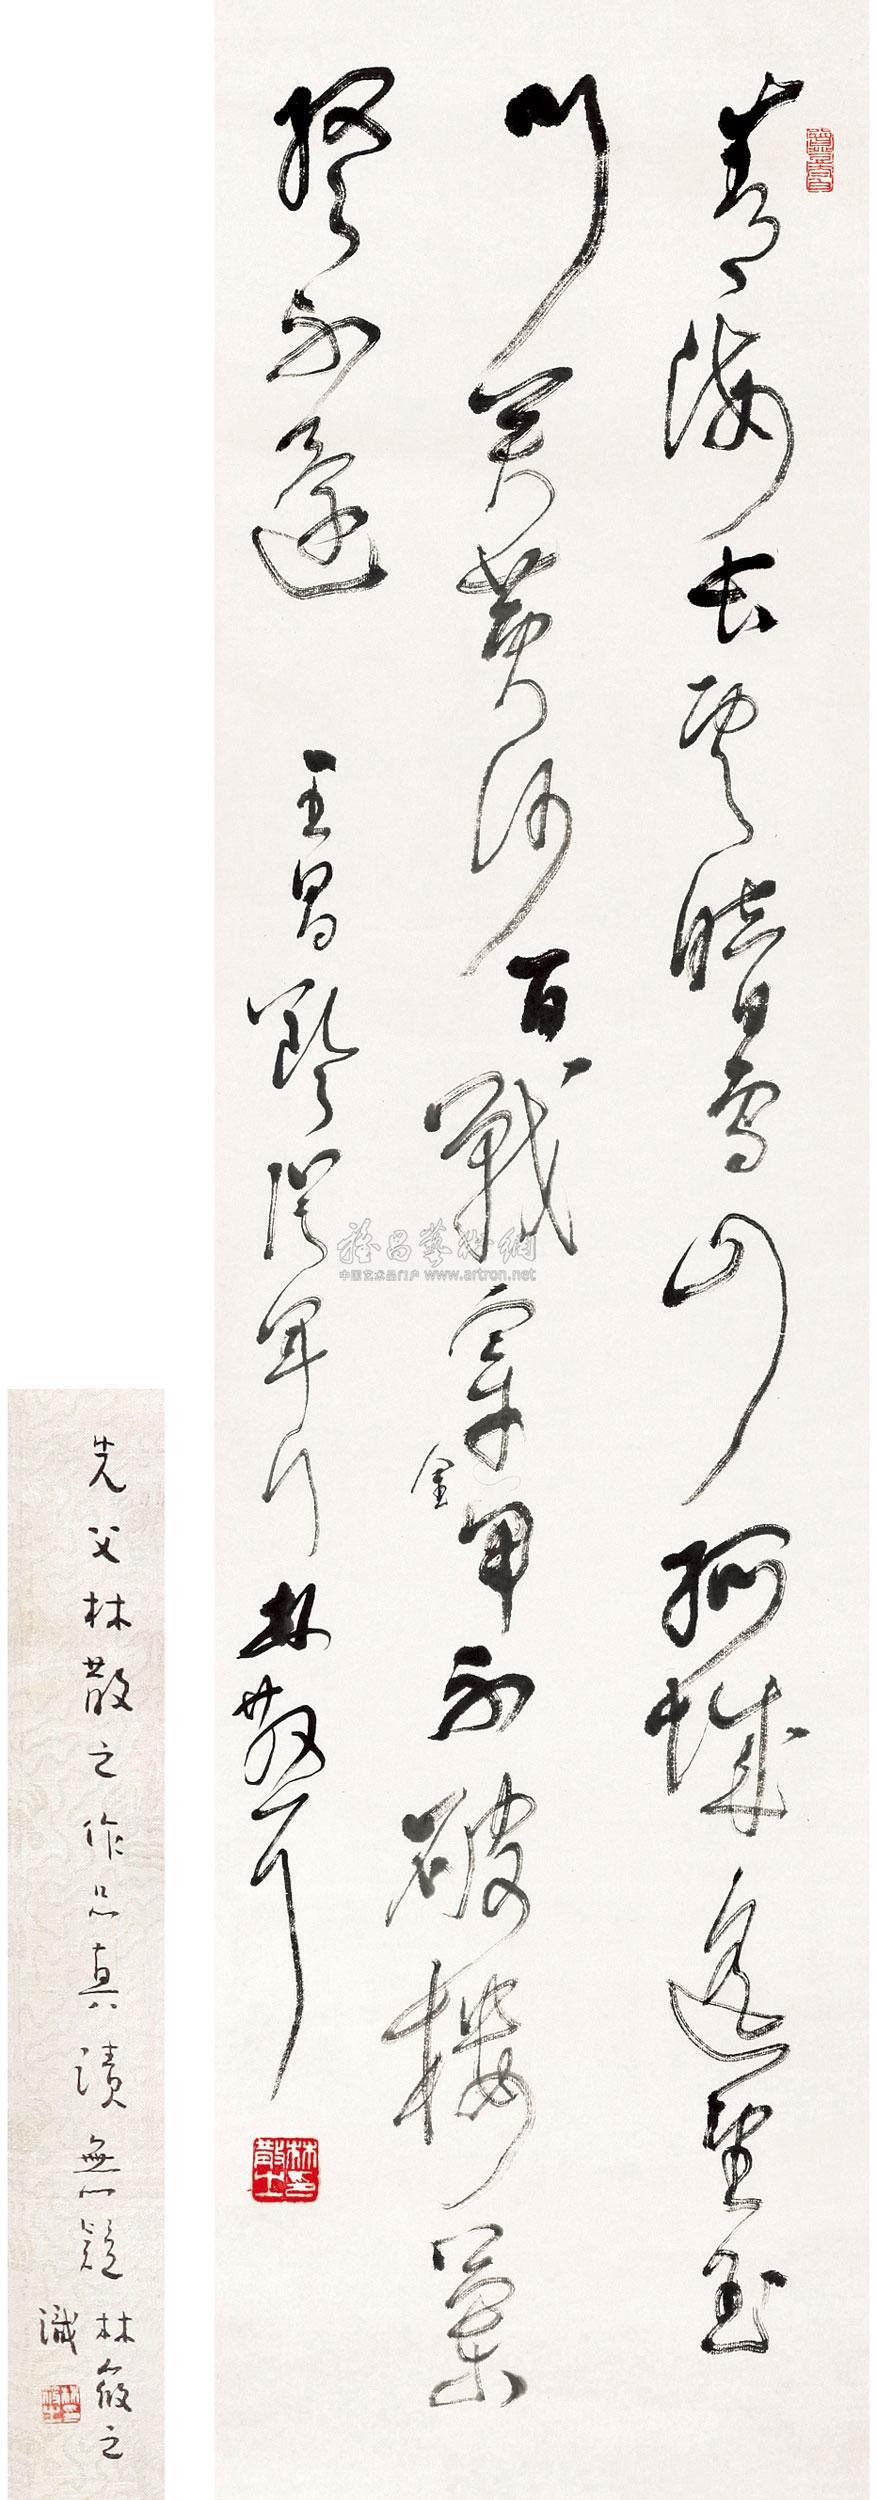 青海长云暗雪山孤城遥望玉
门关黄沙百战穿金甲不破楼兰
终不还
王昌龄从军行 林散耳
先父林散之作品真蹟無疑
林筱之
識
雅昌藝術網
中国艺术品门户 www.artron.net